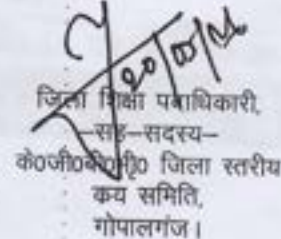 20/05/06
जिला शिक्षा पदाधिकारी,
–सह–सदस्य–
के०जी०बी०भी० जिला स्तरीय
कय समिति,
गोपालगंज।